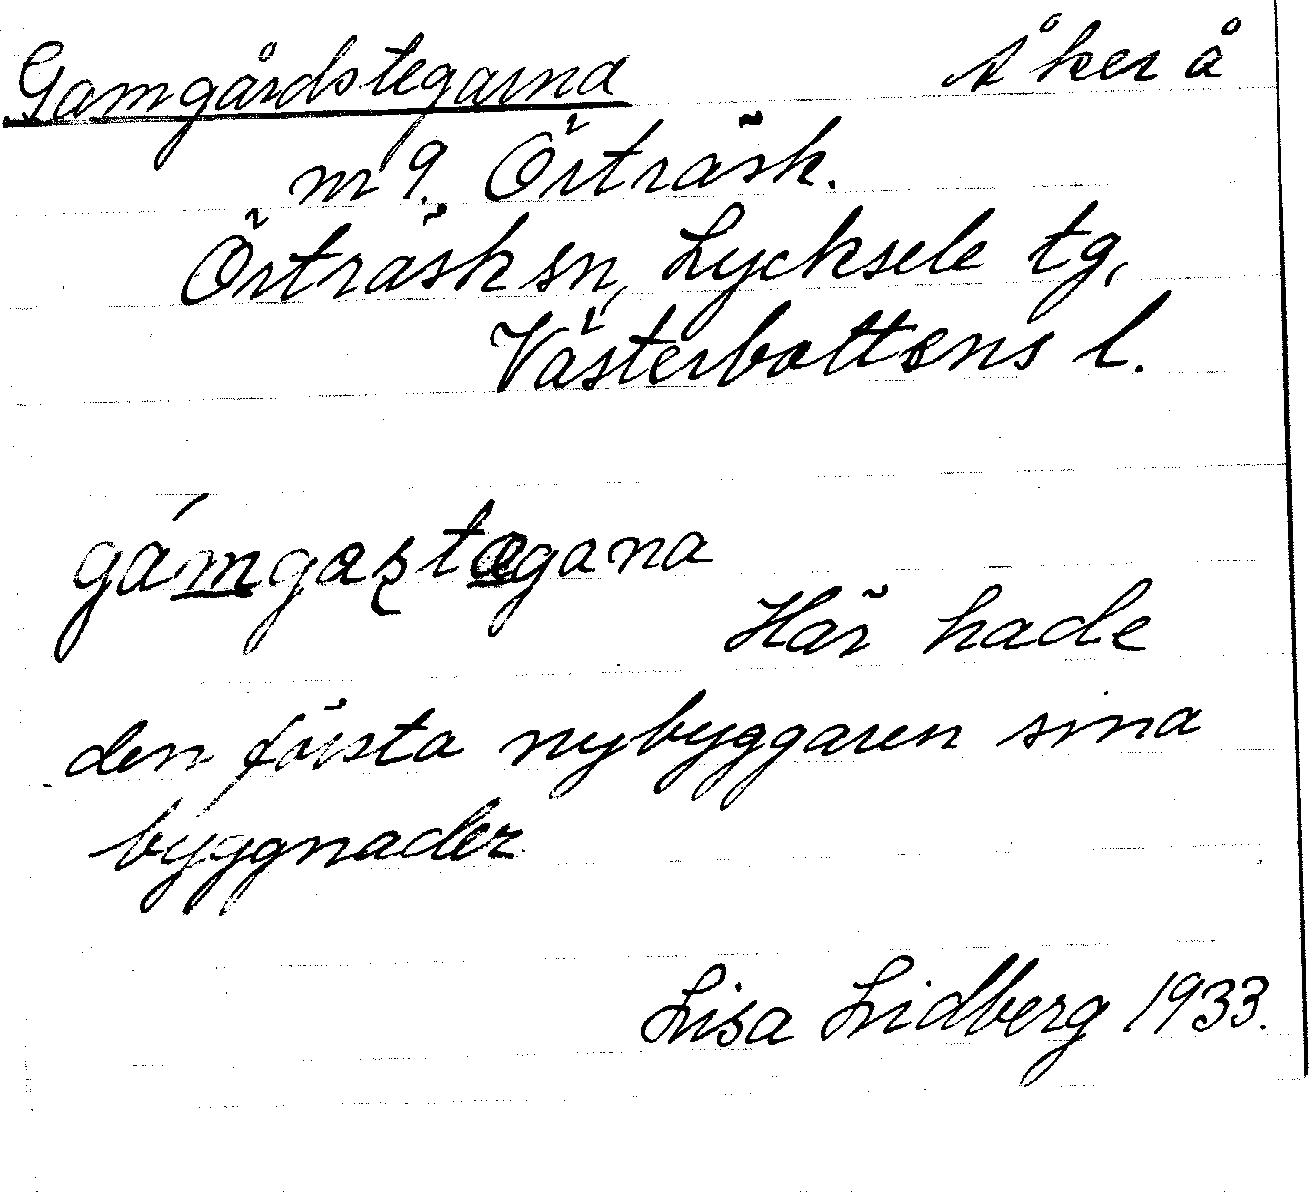 Gamgårdstegarna Åker å
m 9. Örträsk.
Örträsk sn, Lycksele tg,
Västerbottens l.
gámgaʂtægana
Här hade
den första nybyggaren sina
byggnader
Lisa Lidberg 1933.